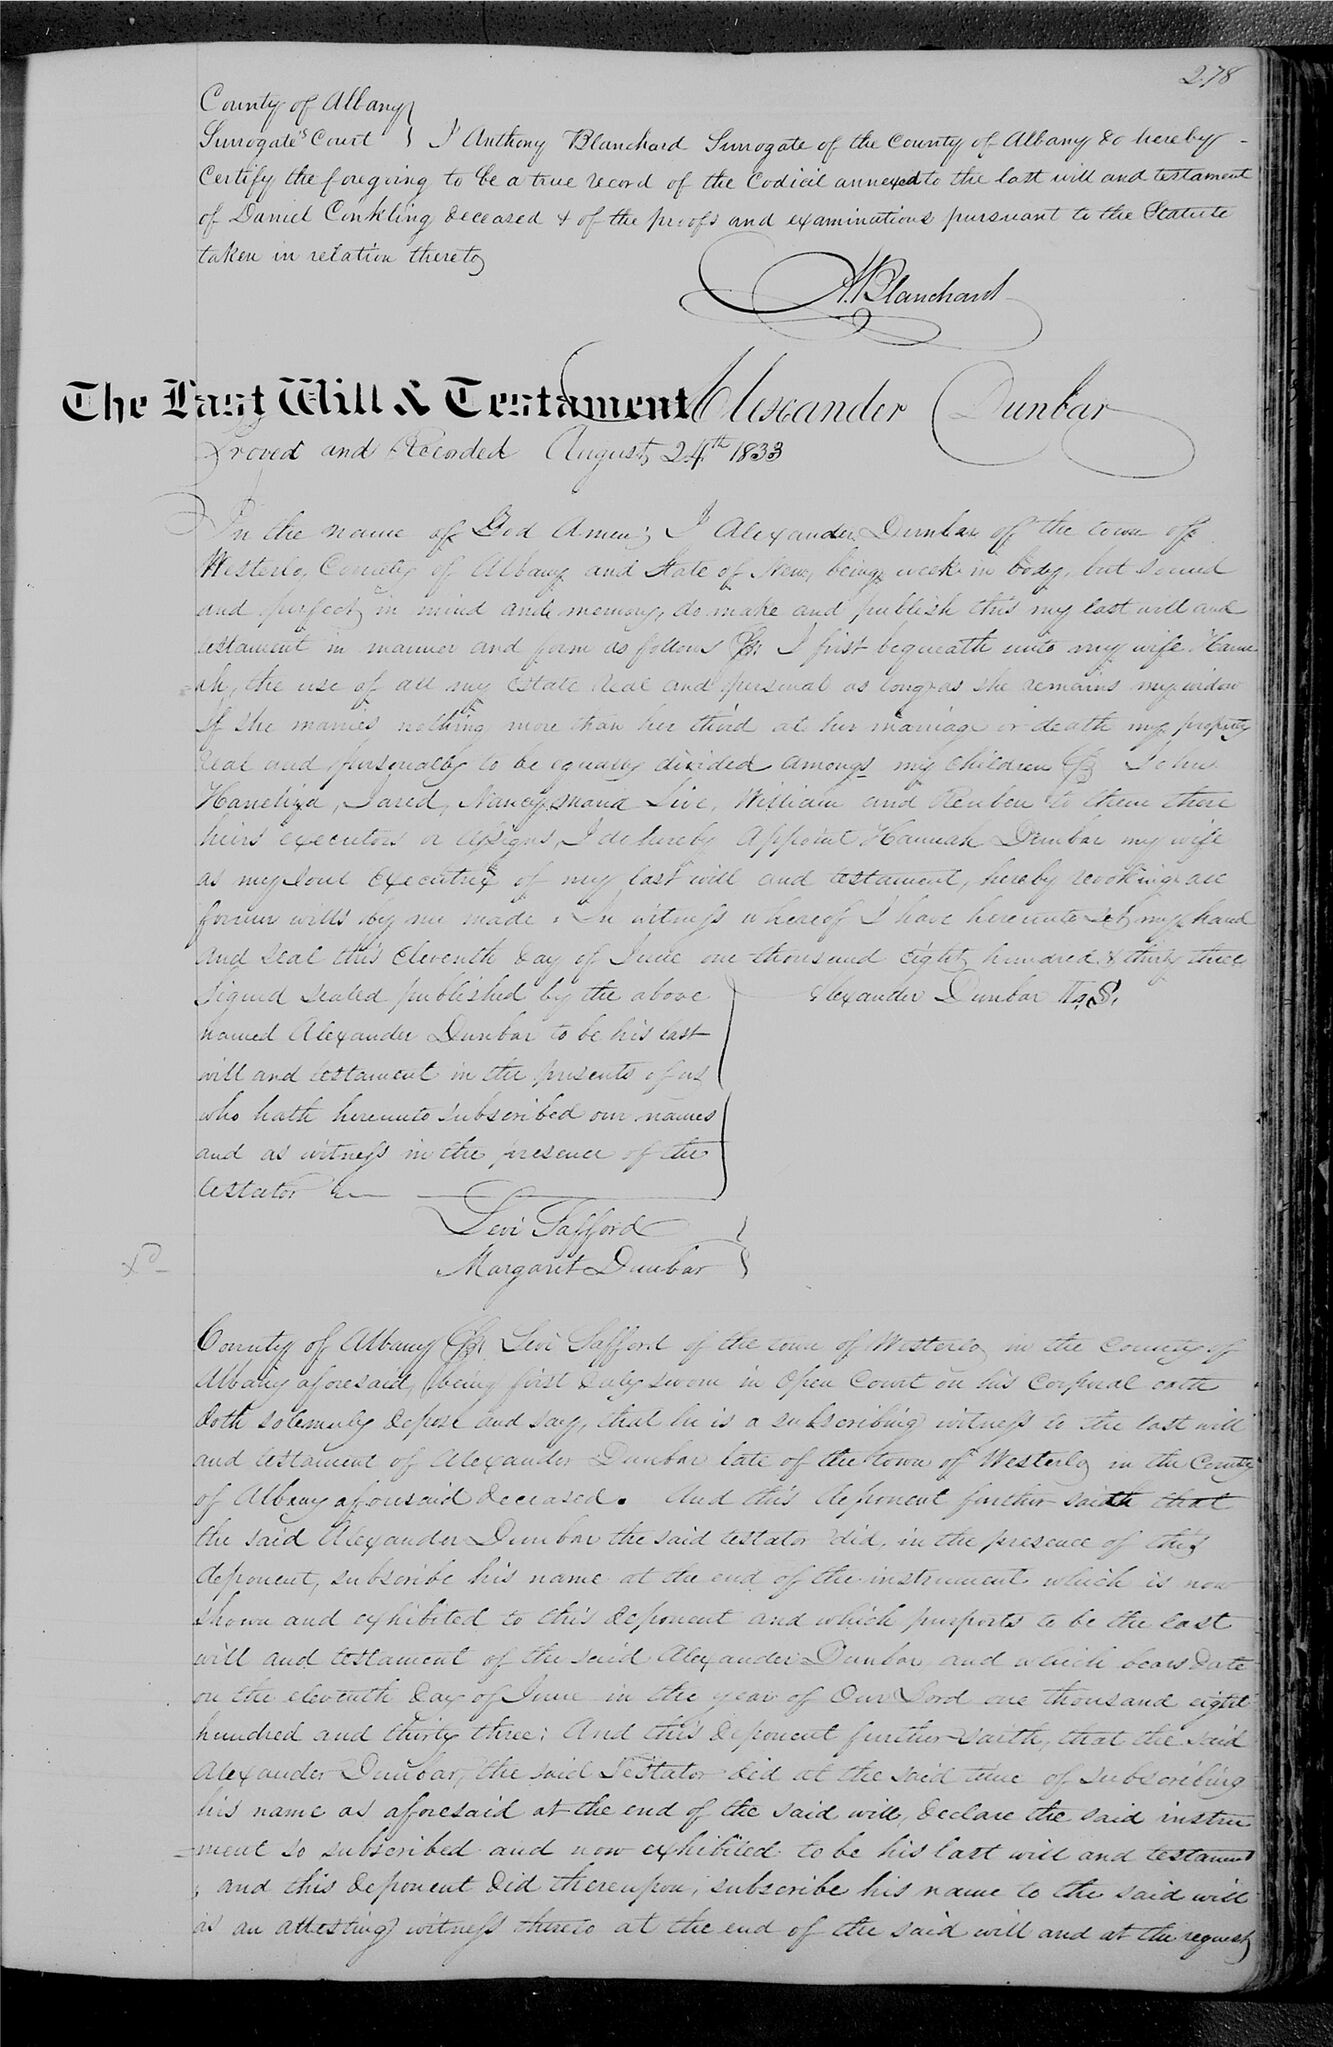 278
County of Albany
Surrogate's Court } I Anthony Blanchard Surrogate of the County of Albany do hereby
Certify the foregoing to be a true record of the Codicil annexed to the last will and testament
of Daniel Conkling deceased & of the proofs and examinations pursuant to the Statute
taken in relation thereto
A. Blanchard
The Last Will & Testament Alexander Dunbar
Proved and Recorded August 24th 1833
In the name of God Amen; I Alexander Dunbar of the town of
Westerlo, County of Albany and State of New, being week in body, but sound
and perfect in mind and memory, do make and publish this my last will and
testament in manner and form as follows I first bequeath unto my wife Hann
=ah, the use of all my estate real and personal as long as she remains my widow
If she marries nothing more than her third at her marriage or death my property
real and personally to be equally divided amongs my children John
Haneliza, Jared, Nancy, William and Reuben to them there
heirs executors or assigns, I do hereby appoint Hannah Dunbar my wife
as my soul Executrix of my last will and testament, hereby revoking all
former wills by me made. In witness whereof I have hereunto set my hand
and seal this eleventh day of June one thousand eight hundred & thirty three
Signed sealed published by the above } Alexander Dunbar L.S.
named Alexander Dunbar to be his last
will and testament in the presents of us
who hath hereunto subscribed our names
and as witness in the presence of the
testator
Levi Safford
Margaret Dunbar
County of Albany Ss. Levi Safford of the town of Westerlo in the County of
Albany aforesaid, being first duly sworn in Open Court on his corporal oath
doth solemnly depose and say, that he is a subscribing witness to the last will
and testament of Alexander Dunbar late of the town of Westerlo in the County
of Albany aforesaid deceased. And this deponent further saith that
the said Alexander Dunbar the said testator did, in the presence of this
deponent, subscribe his name at the end of the instrument which is now
shown and exhibited to this deponent and which purports to be the last
will and testament of the said Alexander Dunbar and which bears date
on the eleventh day of June in the year of Our Lord one thousand eight
hundred and thirty three; And this deponent further saith, that the said
Alexander Dunbar, the said Testator did at the said time of subscribing
his name as aforesaid at the end of the said will, declare the said instru
=ment so subscribed and now exhibited to be his last will and testament
, and this deponent did thereupon, subscribe his name to the said will
as an attesting witness thereto at the end of the said will and at the request